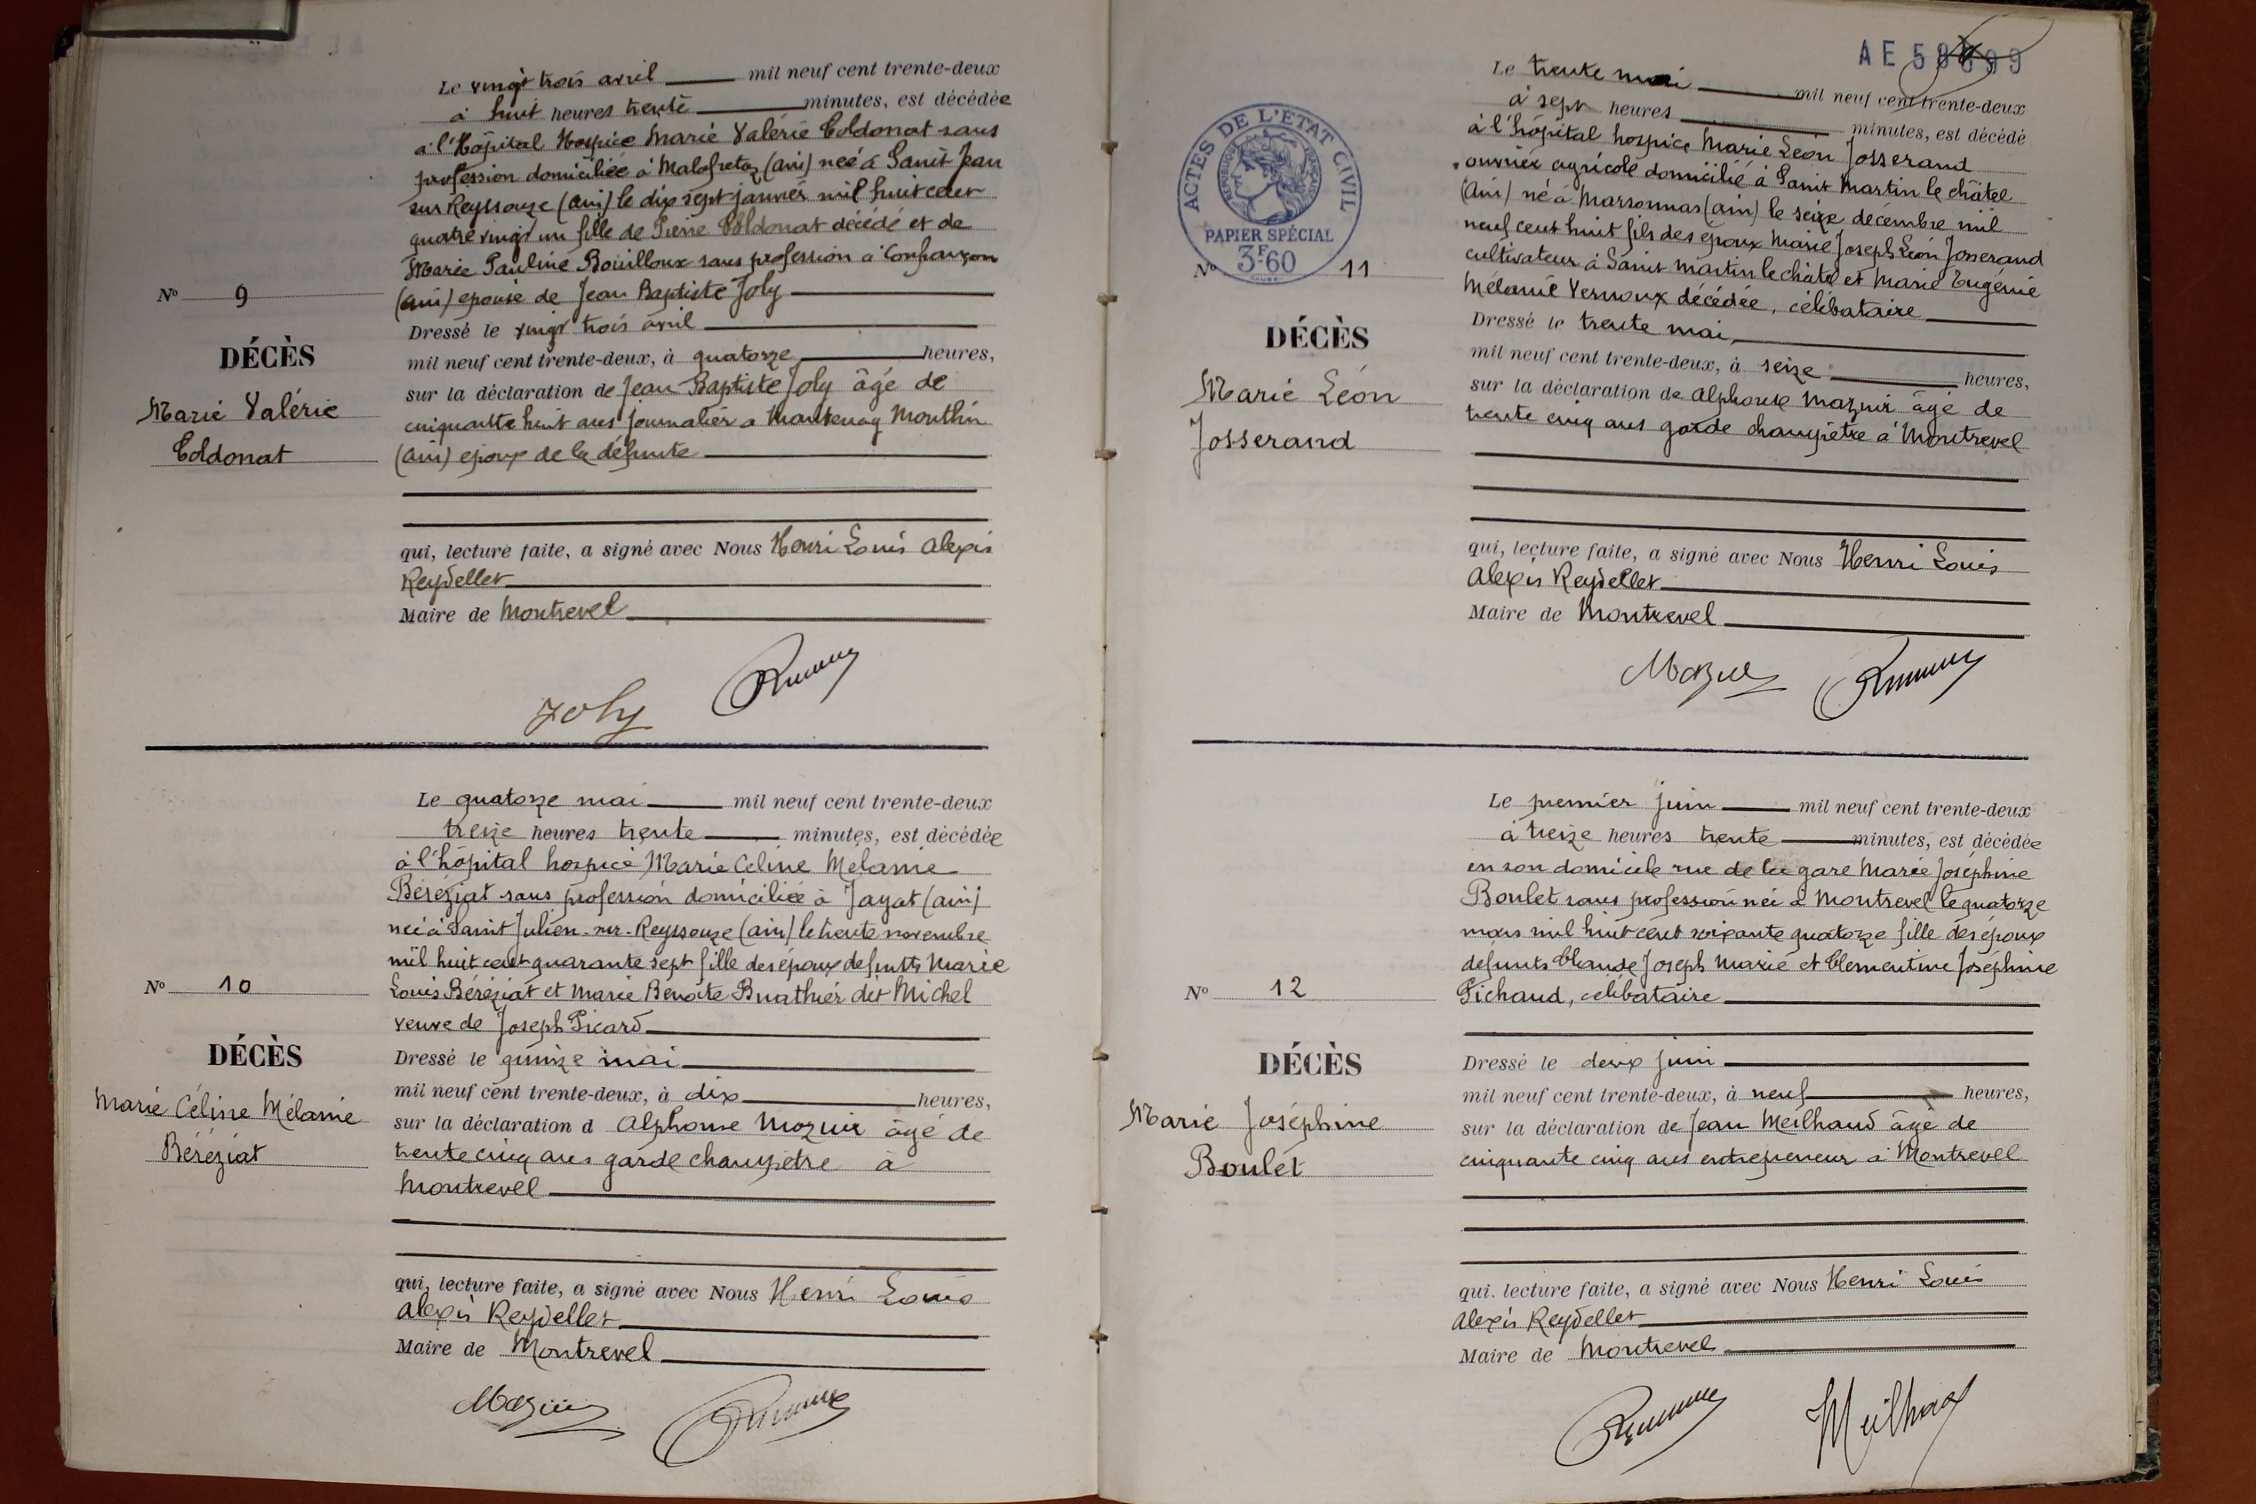 Le vingt trois avril mil neuf cent trente-deux
à huit heures trente minutes, est décédée
à l'Hôpital Hospice Marie Valérie Coldonat sans
profession domiciliée à Malafretaz (ain) née à Saint Jean
sur Reyssouze (ain) le dix sept janvier mil huit cent
quatre vingt un fille de Pierre Coldonat décédé et de
Marie Pauline Bouilloux sans profession à Confrançon
(ain) épouse de Jean Baptiste Joly
Nº 9
DÉCÈS
Marie Valérie
Coldonat
Dressé le vingt trois avril
mil neuf cent trente-deux, à quatorze heures,
sur la déclaration de Jean Baptiste Joly âgé de
cinquante huit ans journalier à Mantenay Montlin
(ain) époux de la défunte
qui, lecture faite, a signé avec Nous Henri Louis Alexis
Reydellet
Maire de Montrevel
Joly
Le quatorze mai mil neuf cent trente-deux
treize heures trente minutes, est décédée
à l'hôpital hospice Marie Céline Mélanie
Béréziat sans profession domiciliée à Jayat (ain)
née à Saint Julien-sur-Reyssouze (ain) le trente novembre
mil huit cent quarante sept fille des époux défunts Marie
Louis Béréziat et Marie Benoite Buathier dit Michel
veuve de Joseph Picard
Nº 10
DÉCÈS
Marie Céline Mélanie
Béréziat
Dressé le quinze mai
mil neuf cent trente-deux, à dix heures,
sur la déclaration d Alphonse Mazuir âgé de
trente cinq ans garde champêtre à
Montrevel
qui, lecture faite, a signé avec Nous Henri Louis
Alexis Reydellet
Maire de Montrevel
Mazuir
AE
ACTES DE L'ÉTAT CIVIL
RÉPUBLIQUE FRANÇAISE
PAPIER SPÉCIAL
3F60
Le trente mai mil neuf cent trente-deux
à sept heures minutes, est décédé
à l'hôpital hospice Marie Léon Josserand
ouvrier agricole domicilié à Saint Martin le châtel
(ain) né à Marsonnas (ain) le seize décembre mil
neuf cent huit fils des époux Marie Joseph Léon Josserand
cultivateur à Saint Martin le châtel et Marie Eugénie
Mélanie Vernoux décédée, célibataire
Nº 11
DÉCÈS
Marie Léon
Josserand
Dressé le trente mai,
mil neuf cent trente-deux, à seize heures,
sur la déclaration de Alphonse Mazuir âgé de
trente cinq ans garde champêtre à Montrevel
qui, lecture faite, a signé avec Nous Henri Louis
Alexis Reydellet
Maire de Montrevel
Mazuir
Le premier juin mil neuf cent trente-deux
à treize heures trente minutes, est décédée
en son domicile rue de la gare Marie Joséphine
Boulet sans profession née à Montrevel le quatorze
mars mil huit cent soixante quatorze fille des époux
défunts Claude Joseph Marie et Clementine Joséphine
Pichaud, célibataire
Nº 12
DÉCÈS
Marie Joséphine
Boulet
Dressé le deux juin
mil neuf cent trente-deux, à neuf heures,
sur la déclaration de Jean Meilhaud âgé de
cinquante cinq ans entrepreneur à Montrevel
qui, lecture faite, a signé avec Nous Henri Louis
Alexis Reydellet
Maire de Montrevel